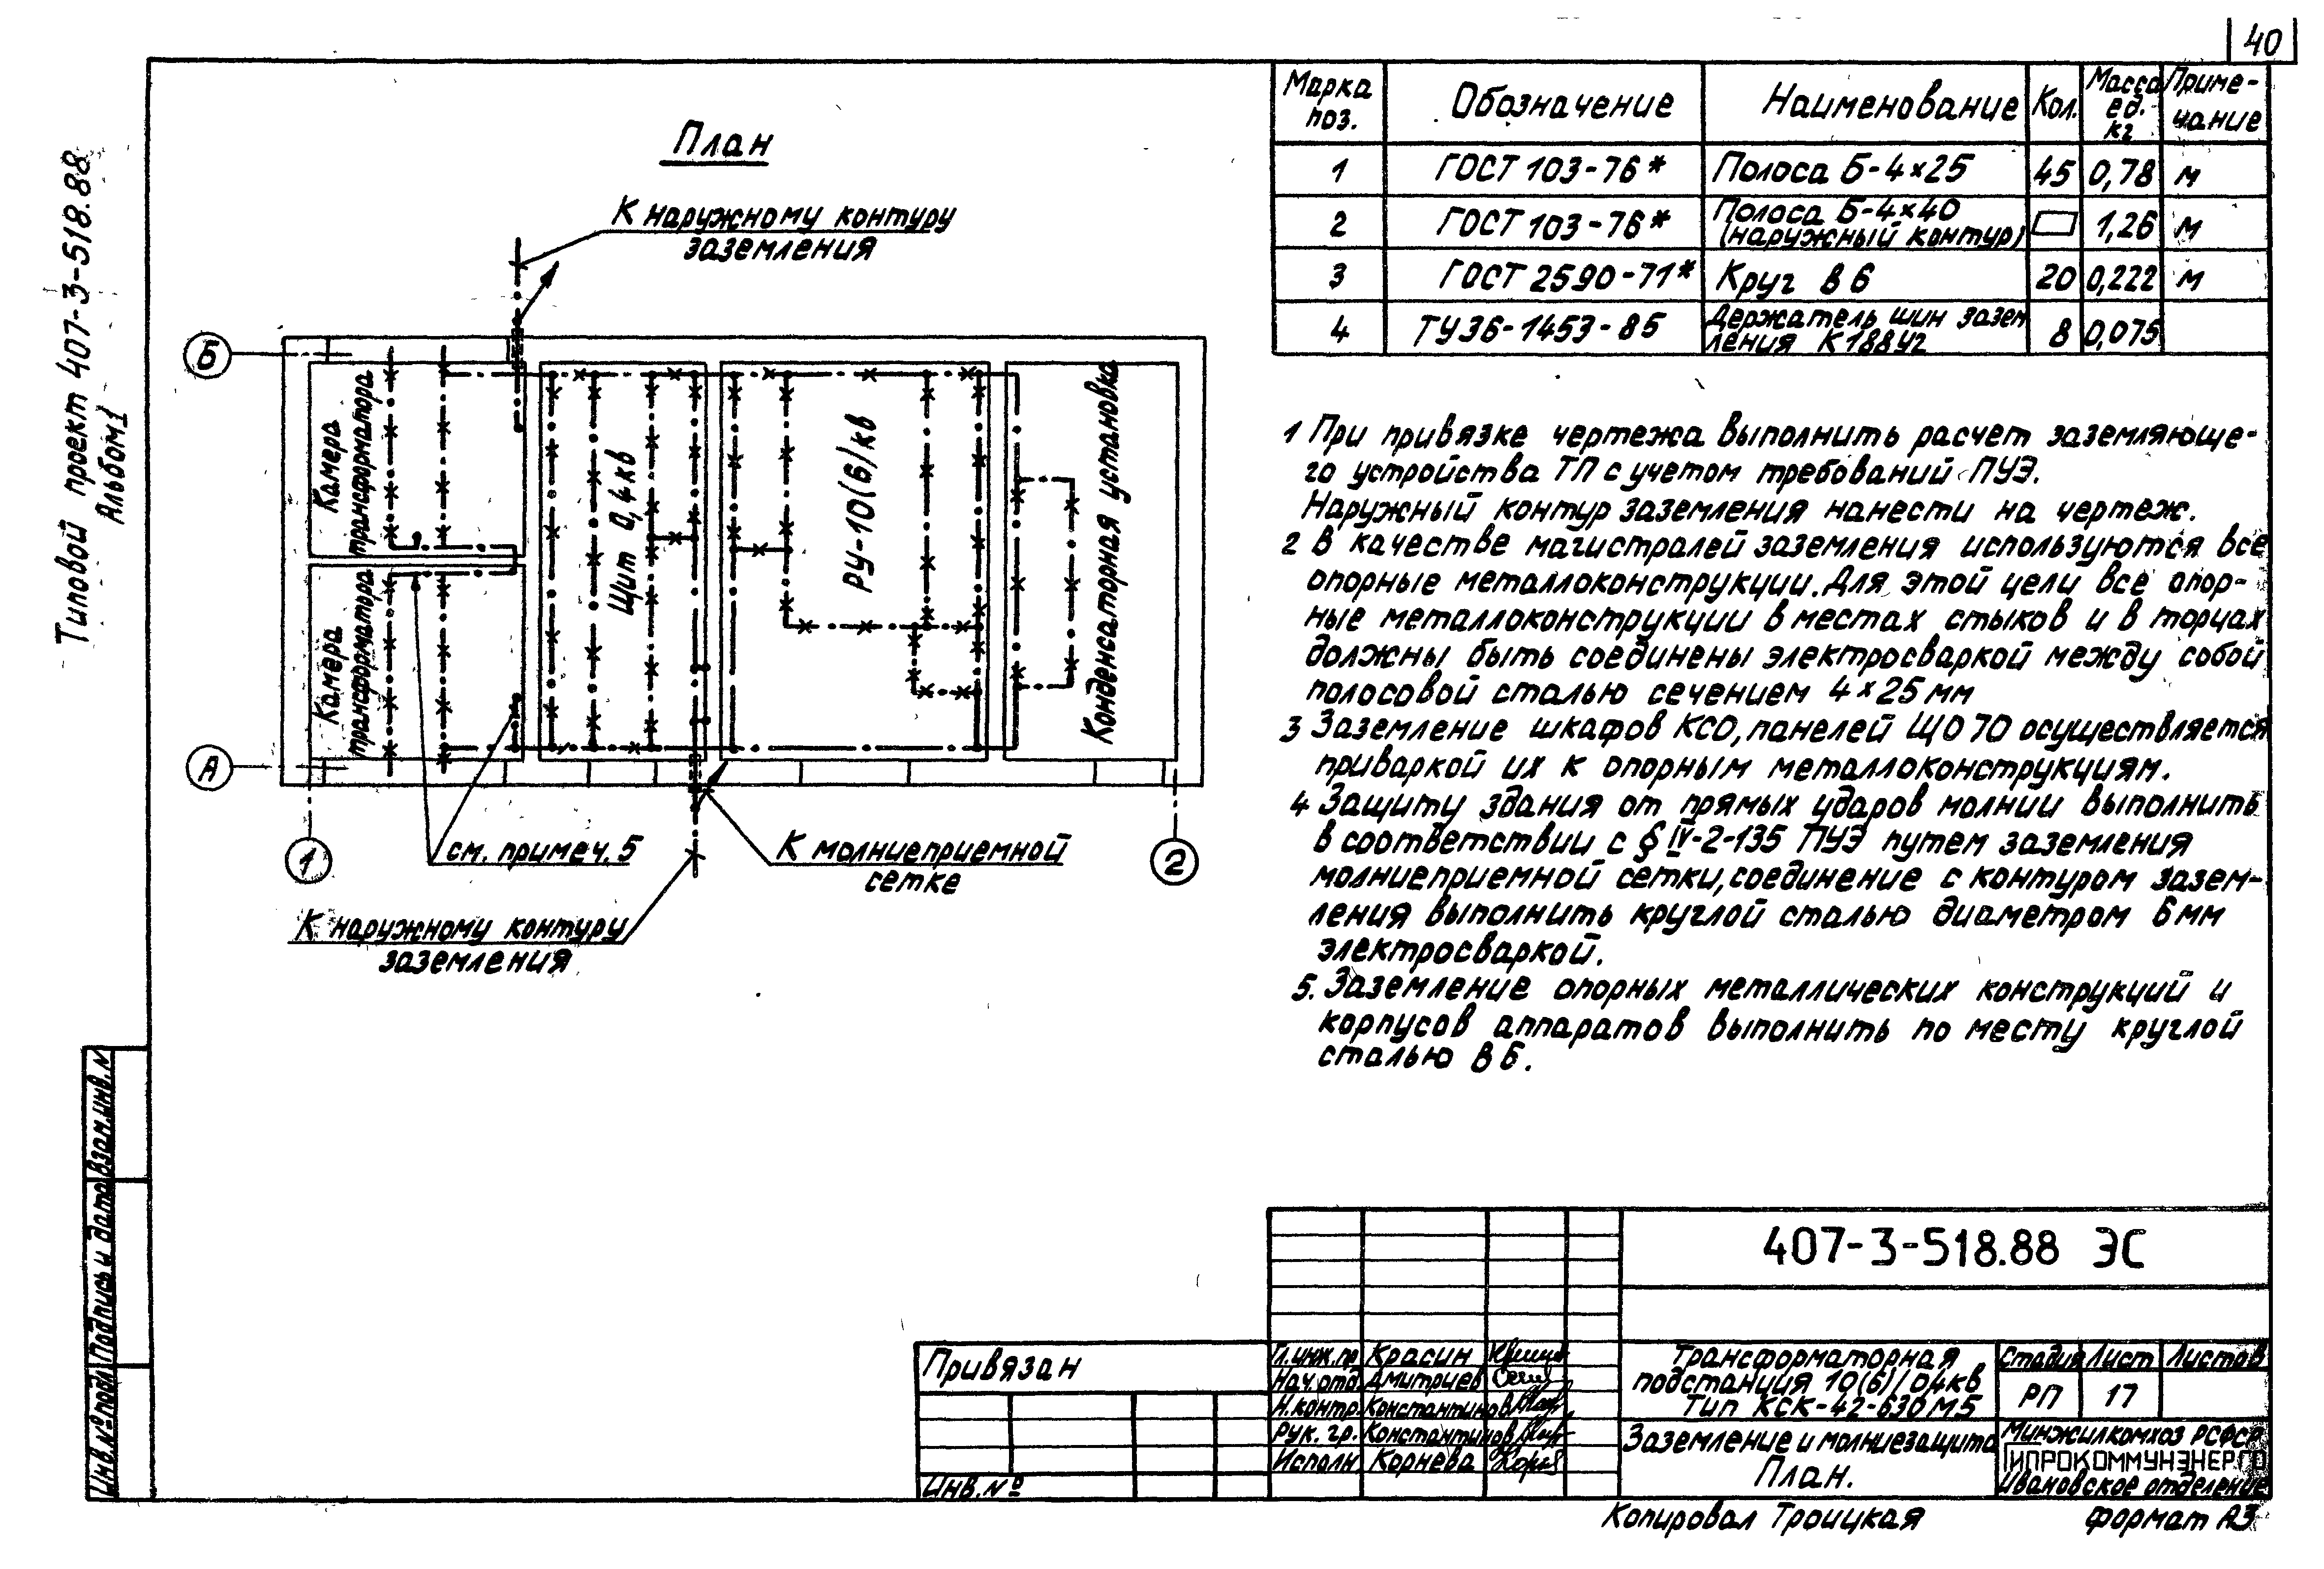 40
Типовой проект 407-3-518.88
Альбом 1
План
К наружному контуру
заземления
Б
А
1
2
Камера
трансформатора
Камера
трансформатора
Щит 0,4кв
РУ-10(6)кв
Конденсаторная установка
см. примеч. 5
К молниеприемной
сетке
К наружному контуру
заземления
Марка поз. Обозначение Наименование Кол. Масса ед. кг Приме-чание
1 ГОСТ 103-76* Полоса Б-4×25 45 0,78 м
2 ГОСТ 103-76* Полоса Б-4×40 (наружный контур) 1,26 м
3 ГОСТ 2590-71* Круг В6 20 0,222 м
4 ТУ36-1453-85 Держатель шин зазем ления К188У2 8 0,075
1 При привязке чертежа выполнить расчет заземляюще-
го устройства ТП с учетом требований ПУЭ.
Наружный контур заземления нанести на чертеж.
2 В качестве магистралей заземления используются все
опорные металлоконструкции. Для этой цели все опор-
ные металлоконструкции в местах стыков и в торцах
должны быть соединены электросваркой между собой
полосовой сталью сечением 4×25мм
3 Заземление шкафов КСО, панелей ЩО70 осуществляется
приваркой их к опорным металлоконструкциям.
4 Защиту здания от прямых ударов молнии выполнить
в соответствии с § IV-2-135 ПУЭ путем заземления
молниеприемной сетки, соединение с контуром зазем-
ления выполнить круглой сталью диаметром 6мм
электросваркой.
5. Заземление опорных металлических конструкций и
корпусов аппаратов выполнить по месту круглой
сталью В6.
Инв.№подл Подпись и дата Взам.инв.N
407-3-518.88 ЭС
Привязан
Инв.№
Гл.инж.пр Красин
Нач.отд Дмитриев
Н.контр. Константинов
Рук. гр. Константинов
Исполн. Корнева
Трансформаторная
подстанция 10(6)/0,4кв
Тип КСК-42-630М5
Стадия Лист Листов
РП 17
Заземление и молниезащита
План.
Минжилкомхоз РСФСР
ГИПРОКОММУНЭНЕРГО
Ивановское отделение
Копировал Троицкая
формат А3